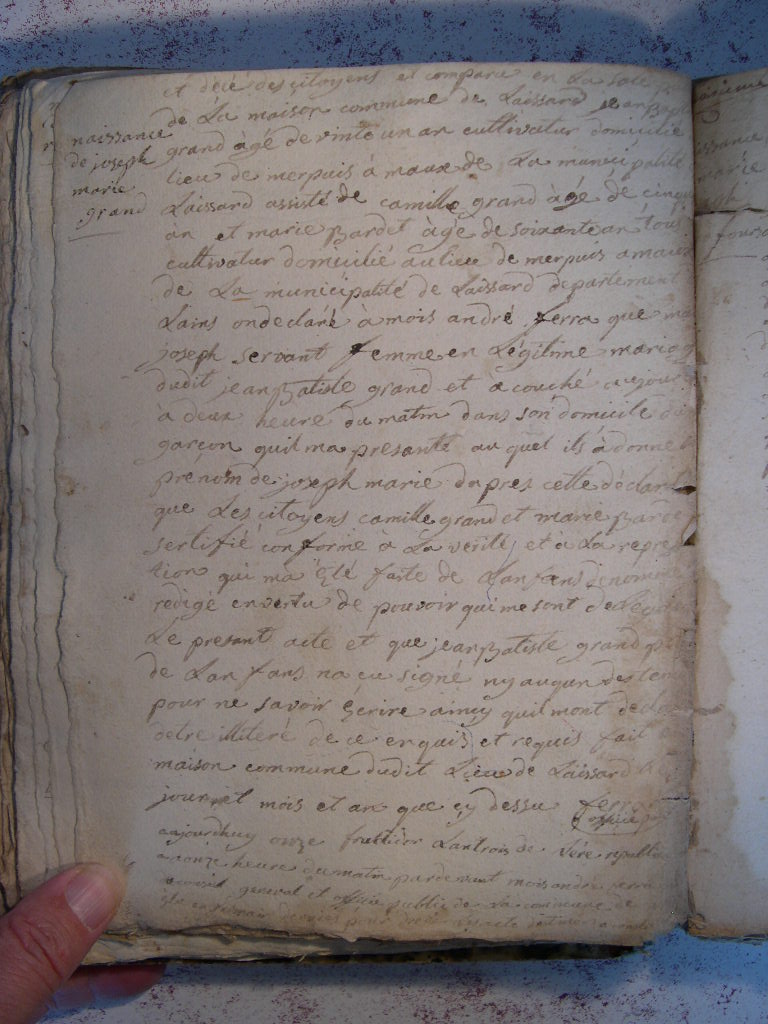 et décé des citoyens et comparu en La sale
de La maison commune de Laissard jean Bap
naissance
de joseph
marie
grand
grand àgé de vinte un an cultivatur domicilié
lieu de merpuis à maux de La municipalité
Laissard assisté de camille grand àgé de cinqu
an et marie Bardet àgé de soixante an tous
cultivatur domicilié au lieu de merpuis a maux
de La municipalité de Laissard departement
Lains on declaré à mois andré ferra que ma
joseph servant femme en Légitime mariag
dudit jean Batiste grand et acouché aujour
à deux heure du matin dans son domicile du
garcon quil ma présanté au quel ils à donné
prenom de joseph marie dapres cette déclara
que Les citoyens camille grand et marie Barde
sertifié conforme à La verité et à La repres
tion qui ma été faite de Lanfans dénommé
redigé en vertu de pouvoir qui me sont delegu
Le présant acte et que jean Batiste grand
de Lanfans na cu signé ny auqun des tem
pour ne savoir écrire amuy quil mont decla
detre illiteré de ce enquis et requis fait
maison commune dudit Lieu de Laissard
jour et mois et an que cy dessu ferra
officié
aujourdhuy onze fruttidor Lantrois de Lére republi
a onze heure du matin par devant mois andré ferra
general et officié public de La commune de